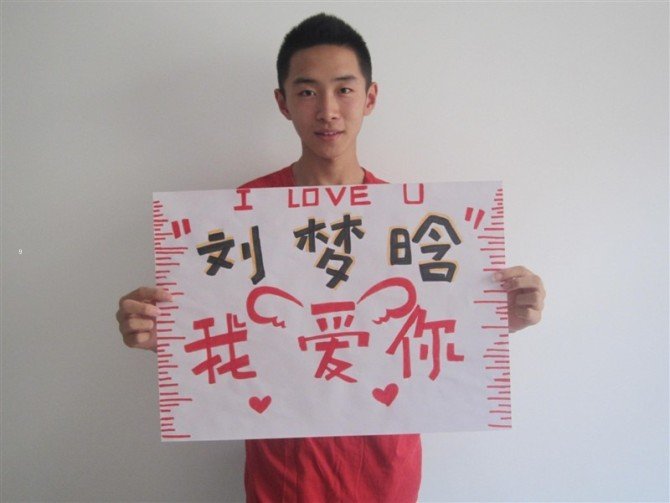 I LOVE U
"刘梦晗"
我爱你
9